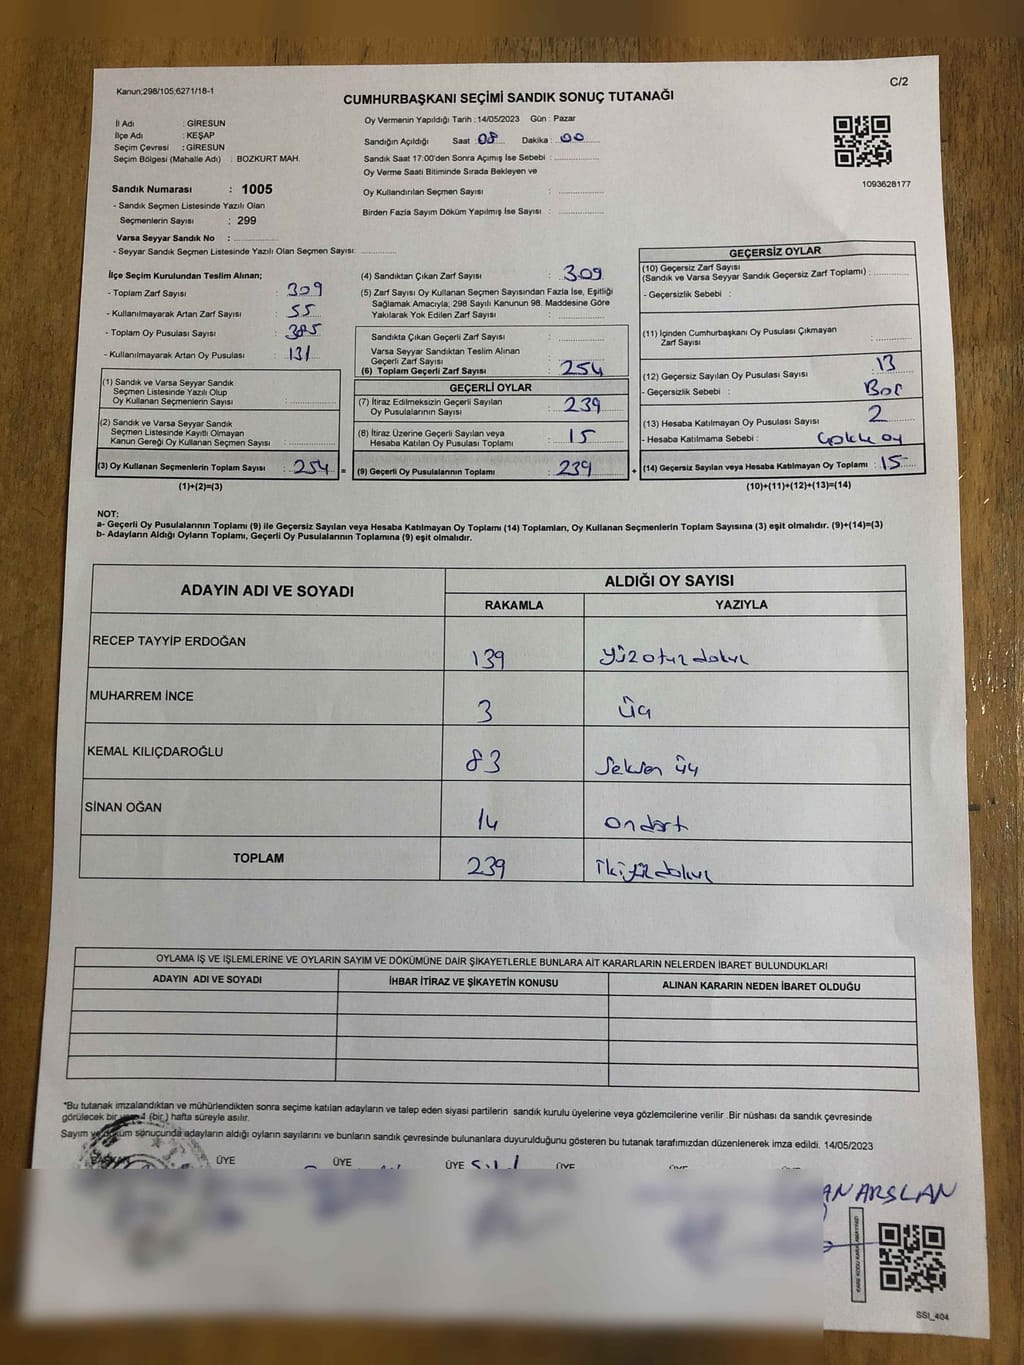 Kanun;298/105;6271/18-1
C/2
CUMHURBAŞKANI SEÇİMİ SANDIK SONUÇ TUTANAĞI
İl Adı : GİRESUN
İlçe Adı : KEŞAP
Seçim Çevresi : GİRESUN
Seçim Bölgesi (Mahalle Adı) : BOZKURT MAH.
Sandık Numarası : 1005
- Sandık Seçmen Listesinde Yazılı Olan
Seçmenlerin Sayısı : 299
Varsa Seyyar Sandık No :
- Seyyar Sandık Seçmen Listesinde Yazılı Olan Seçmen Sayısı:
Oy Vermenin Yapıldığı Tarih : 14/05/2023 Gün : Pazar
Sandığın Açıldığı Saat : 08 Dakika : 00
Sandık Saat 17:00'den Sonra Açımış İse Sebebi :
Oy Verme Saati Bitiminde Sırada Bekleyen ve
Oy Kullandırılan Seçmen Sayısı :
Birden Fazla Sayım Döküm Yapılmış İse Sayısı :
1093628177
İlçe Seçim Kurulundan Teslim Alınan;
- Toplam Zarf Sayısı : 309
- Kullanılmayarak Artan Zarf Sayısı : 55
- Toplam Oy Pusulası Sayısı : 385
- Kullanılmayarak Artan Oy Pusulası : 131
(1) Sandık ve Varsa Seyyar Sandık
Seçmen Listesinde Yazılı Olup
Oy Kullanan Seçmenlerin Sayısı :
(2) Sandık ve Varsa Seyyar Sandık
Seçmen Listesinde Kayıtlı Olmayan
Kanun Gereği Oy Kullanan Seçmen Sayısı :
(3) Oy Kullanan Seçmenlerin Toplam Sayısı : 254 =
(1)+(2)=(3)
(4) Sandıktan Çıkan Zarf Sayısı : 309
(5) Zarf Sayısı Oy Kullanan Seçmen Sayısından Fazla İse, Eşitliği
Sağlamak Amacıyla; 298 Sayılı Kanunun 98. Maddesine Göre
Yakılarak Yok Edilen Zarf Sayısı :
Sandıkta Çıkan Geçerli Zarf Sayısı :
Varsa Seyyar Sandıktan Teslim Alınan
Geçerli Zarf Sayısı :
(6) Toplam Geçerli Zarf Sayısı : 254
GEÇERLİ OYLAR
(7) İtiraz Edilmeksizin Geçerli Sayılan
Oy Pusulalarının Sayısı : 239
(8) İtiraz Üzerine Geçerli Sayılan veya
Hesaba Katılan Oy Pusulası Toplamı : 15
(9) Geçerli Oy Pusulalarının Toplamı : 239 +
GEÇERSİZ OYLAR
(10) Geçersiz Zarf Sayısı
(Sandık ve Varsa Seyyar Sandık Geçersiz Zarf Toplamı) :
- Geçersizlik Sebebi :
(11) İçinden Cumhurbaşkanı Oy Pusulası Çıkmayan
Zarf Sayısı :
(12) Geçersiz Sayılan Oy Pusulası Sayısı : 13
- Geçersizlik Sebebi : Boş
(13) Hesaba Katılmayan Oy Pusulası Sayısı : 2
- Hesaba Katılmama Sebebi : Çoklu oy
(14) Geçersiz Sayılan veya Hesaba Katılmayan Oy Toplamı : 15
(10)+(11)+(12)+(13)=(14)
NOT:
a- Geçerli Oy Pusulalarının Toplamı (9) ile Geçersiz Sayılan veya Hesaba Katılmayan Oy Toplamı (14) Toplamları, Oy Kullanan Seçmenlerin Toplam Sayısına (3) eşit olmalıdır. (9)+(14)=(3)
b- Adayların Aldığı Oyların Toplamı, Geçerli Oy Pusulalarının Toplamına (9) eşit olmalıdır.
ADAYIN ADI VE SOYADI
ALDIĞI OY SAYISI
RAKAMLA YAZIYLA
RECEP TAYYİP ERDOĞAN 139 Yüzotuz dokuz
MUHARREM İNCE 3 Üç
KEMAL KILIÇDAROĞLU 83 Seksen üç
SİNAN OĞAN 14 ondört
TOPLAM 239
OYLAMA İŞ VE İŞLEMLERİNE VE OYLARIN SAYIM VE DÖKÜMÜNE DAİR ŞİKAYETLERLE BUNLARA AİT KARARLARIN NELERDEN İBARET BULUNDUKLARI
ADAYIN ADI VE SOYADI İHBAR İTİRAZ VE ŞİKAYETİN KONUSU ALINAN KARARIN NEDEN İBARET OLDUĞU
*Bu tutanak imzalandıktan ve mühürlendikten sonra seçime katılan adayların ve talep eden siyasi partilerin sandık kurulu üyelerine veya gözlemcilerine verilir .Bir nüshası da sandık çevresinde
görülecek bir yere 1 (bir ) hafta süreyle asılır.
Sayım ve döküm sonucunda adayların aldığı oyların sayılarını ve bunların sandık çevresinde bulunanlara duyurulduğunu gösteren bu tutanak tarafımızdan düzenlenerek imza edildi. 14/05/2023
BAŞKAN ÜYE ÜYE ÜYE ÜYE
AN ARSLAN
SSI_404